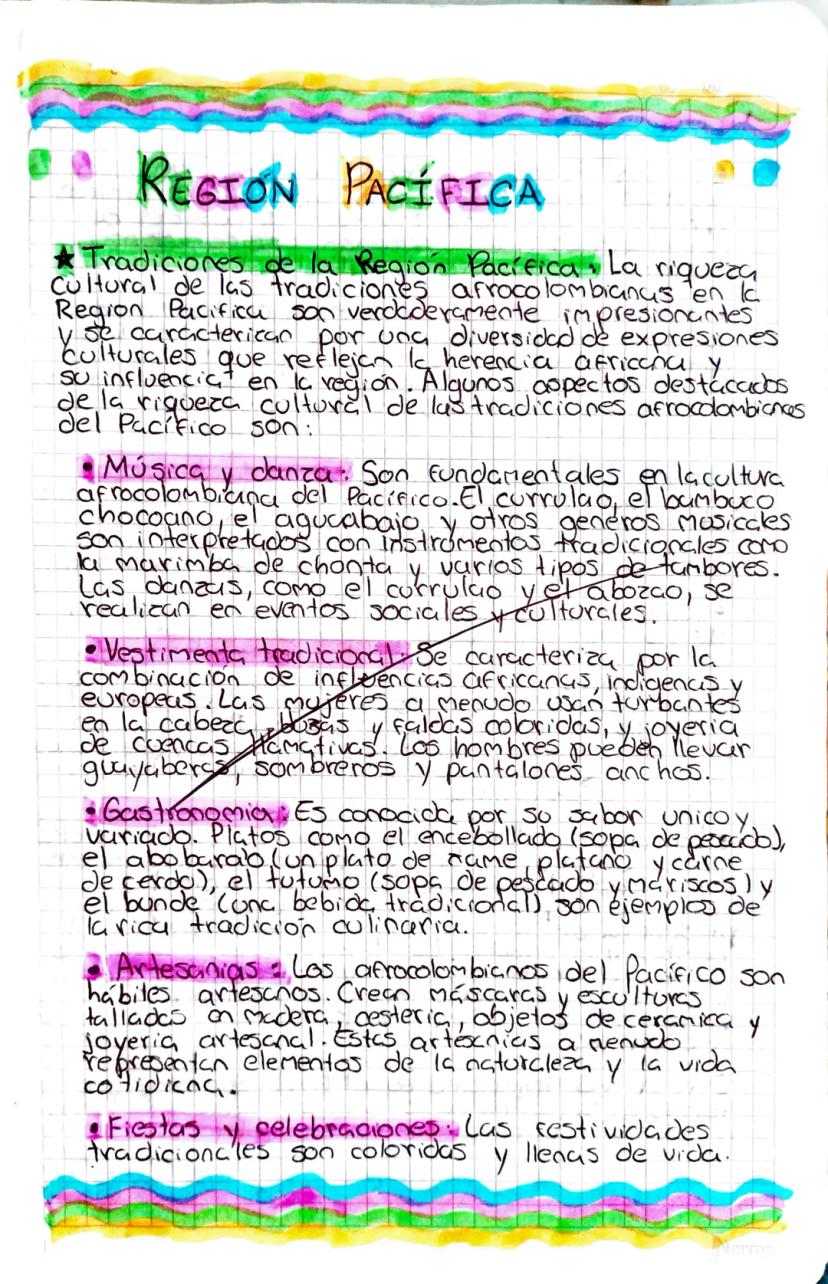 REGIÓN PACÍFICA
★ Tradiciones de la Región Pacífica: La riqueza
cultural de las tradiciones afrocolombianas en la
Region Pacifica son verdaderamente impresionantes
y se caracterizan por una diversidad de expresiones
culturales que reflejan la herencia africana y
su influencia en la región. Algunos aspectos destacados
de la riqueza cultural de las tradiciones afrocolombianas
del Pacífico son:
• Música y danza: Son fundamentales en la cultura
afrocolombiana del Pacífico. El currulao, el bambuco
chocoano, el agucabajo y otros generos musicales
son interpretados con instrumentos tradicionales como
la marimba de chonta y varios tipos de tambores.
Las danzas, como el currulao y el abozao, se
realizan en eventos sociales y culturales.
• Vestimenta tradicional: Se caracteriza por la
combinación de influencias africanas, indigenas y
europeas. Las mujeres a menudo usan turbantes
en la cabeza, blusas y faldas coloridas, y joyeria
de cuencas llamativas. Los hombres pueden llevar
guayaberas, sombreros y pantalones anchos.
• Gastronomia: Es conocida por su sabor unico y
variado. Platos como el encebollado (sopa de pescado),
el abobarao (un plato de ñame, platano y carne
de cerdo), el tutumo (sopa de pescado y mariscos) y
el bunde (una bebida tradicional), son ejemplos de
la rica tradición culinaria.
• Artesanias: Los afrocolombianos del Pacífico son
hábiles artesanos. Crean máscaras y esculturas
talladas en madera, cesteria, objetos de ceramica y
joyeria artesanal. Estas artesanias a menudo
representan elementos de la naturaleza y la vida
cotidiana.
• Fiestas y celebraciones: Las festividades
tradicionales son coloridas y llenas de vida.
Norma